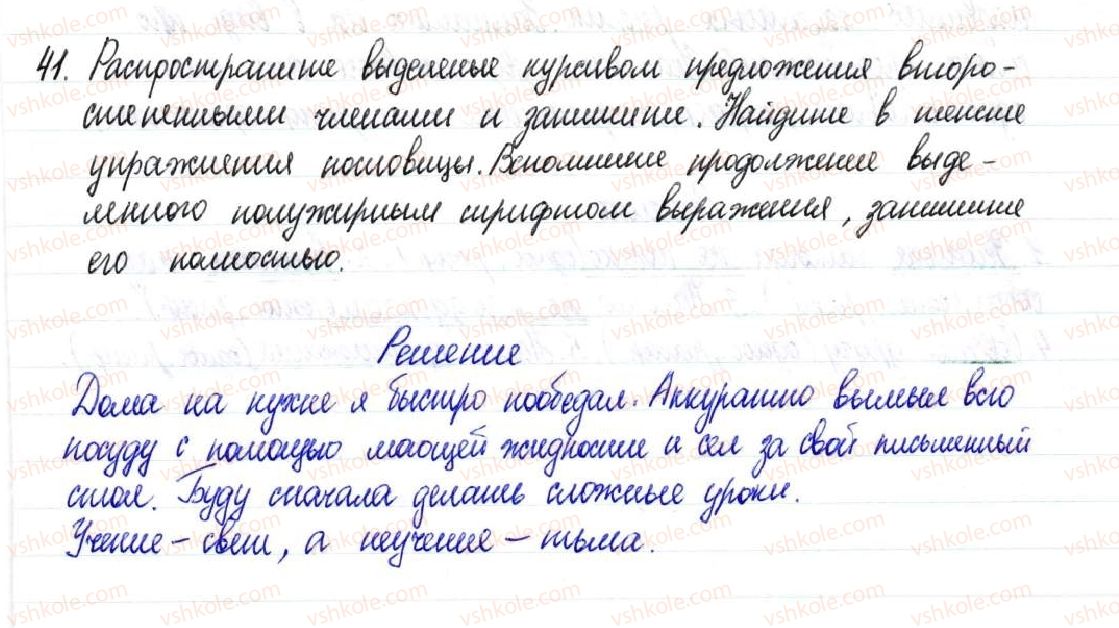 41. Распространите выделеные курсивом предложения второ-
степенными членами и запишите. Найдите в тексте
упражнения пословицы. Вспомните продолжение выде-
ленного полужирным шрифтом выражения, запишите
его полностью.
Решение
Дома на кухне я быстро пообедал. Аккуратно вымыл всю
посуду с помощью моющей жидкости и сел за свой письменный
стол. Буду сначала делать сложные уроки.
Учение – свет, а неучение – тьма.